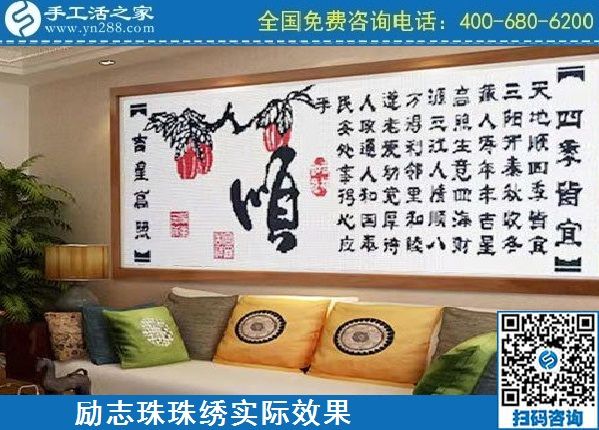 手工活之家
www.yn288.com
全国免费咨询电话：400-680-6200
四季皆宜
天地顺四季皆
三阳开泰秋收冬
藏人寿年丰吉星
高照生意四海财
源三江人情顺八
方得利邻里和睦
遵老爱幼宽厚待
人政通人和国泰
民安处事得心应
手
顺
吉星高照
励志珠珠绣实际效果
扫码咨询